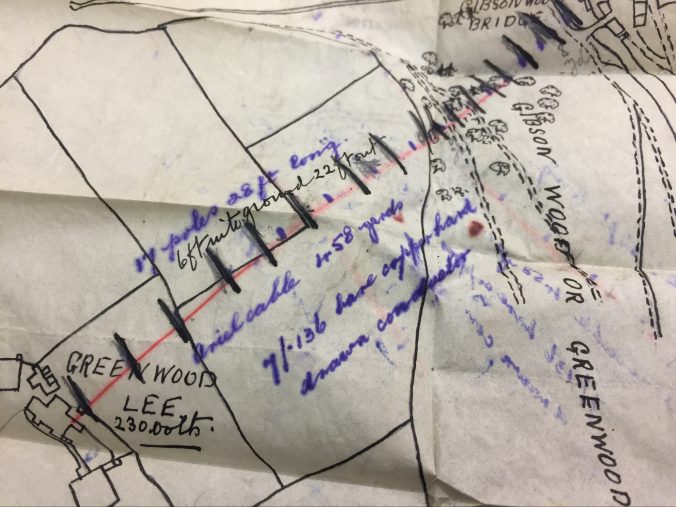 GIBSON WOOD
BRIDGE
17 poles 28ft long.
6ft into ground 22ft out
Ariel cable 458 yards
7/.136 bare copper hard
drawn conductor
GREENWOOD
LEE
230 volts.
GIBSON WOOD OR GREENWOOD